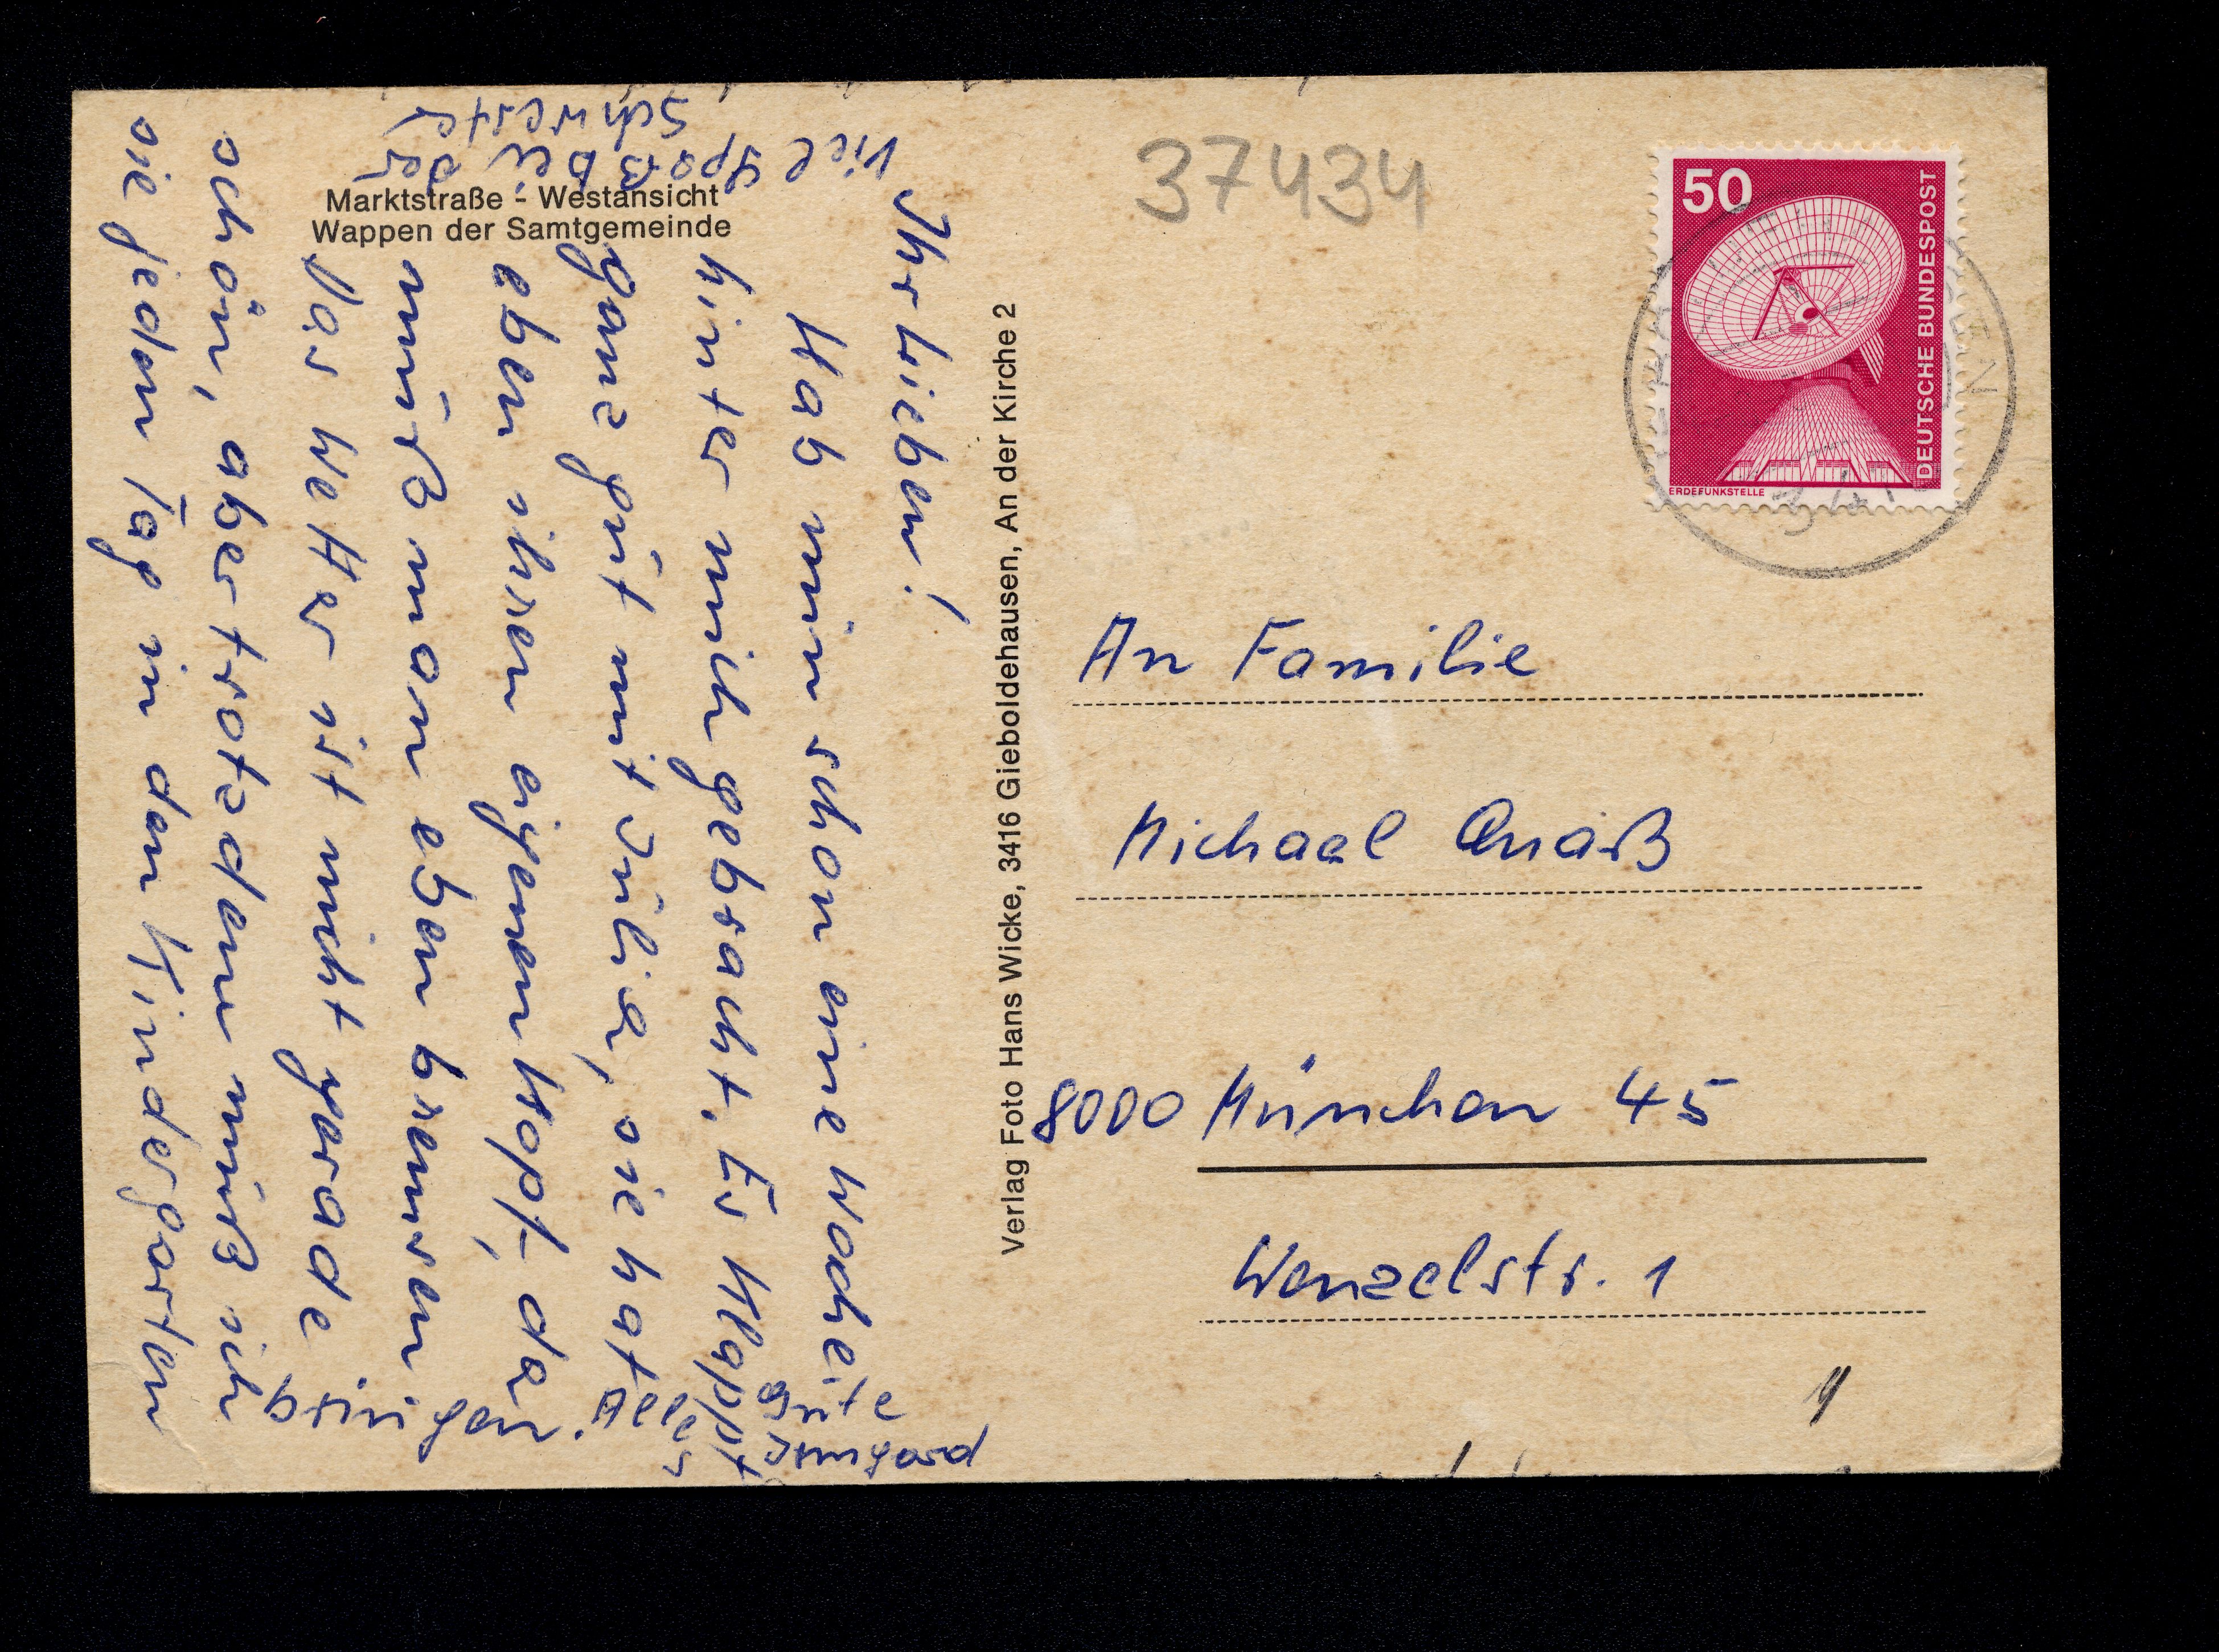 Marktstraße - Westansicht
Wappen der Samtgemeinde
Ihr Lieben!
Hab nun schon eine Woche
hinter mich gebracht. Es klappt
ganz gut mit Julia, sie hat
eben ihren eigenen Kopf, den
muß man eben bremsen.
Das Wetter ist nicht gerade
schön, aber trotzdem muß ich
sie jeden Tag in den Kindergarten
bringen.
Alles
gute
Irmgard
Viel
Spaß
bei der
Verlag Foto Hans Wicke, 3416 Gieboldehausen, An der Kirche 2
37434
50
DEUTSCHE BUNDESPOST
ERDEFUNKSTELLE
An Familie
Michael Quaiß
8000 München 45
Wenzelstr. 1